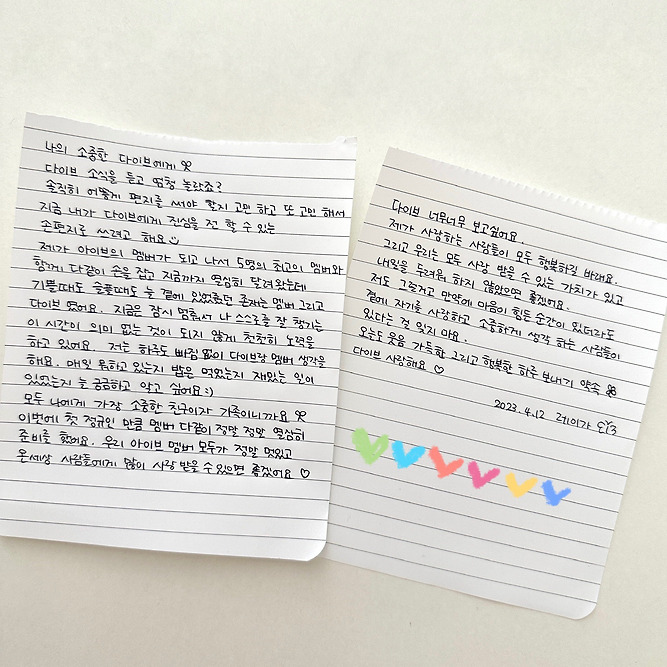 나의 소중한 다이브에게
다이브 소식을 듣고 엄청 놀랐죠?
솔직히 어떻게 편지를 써야 할지 고민 하고 또 고민 해서
지금 내가 다이브에게 진심을 전 할 수 있는
손편지로 쓰려고 해요
제가 아이브의 멤버가 되고 나서 5명의 최고의 멤버와
함께 다같이 손을 잡고 지금까지 열심히 달려왔는데
기쁠때도 슬플때도 늘 곁에 있었줬던 존재는 멤버 그리고
다이브 였어요. 지금은 잠시 멈춰서 나 스스로를 잘 챙기는
이 시간이 의미 없는 것이 되지 않게 천천히 노력을
하고 있어요. 저는 하루도 빠짐 없이 다이브랑 멤버 생각을
해요. 매일 뭐하고 있는지 밥은 먹었는지 재밌는 일이
있었는지 늘 궁금하고 알고 싶어요 :)
모두 나에게 가장 소중한 친구이자 가족이니까요
이번에 첫 정규인 만큼 멤버 다같이 정말 정말 열심히
준비를 했어요. 우리 아이브 멤버 모두가 정말 멋있고
온세상 사람들에게 많이 사랑 받을 수 있으면 좋겠어요 ♡
다이브 너무너무 보고싶어요.
제가 사랑하는 사람들이 모두 행복하길 바래요.
그리고 우리는 모두 사랑 받을 수 있는 가치가 있고
내일을 두려워 하지 않았으면 좋겠어요.
저도 그렇고 만약에 마음이 힘든 순간이 있더라도
곁에 자기를 사랑하고 소중하게 생각 하는 사람들이
있다는 것 잊지 마요.
오늘도 웃음 가득한 그리고 행복한 하루 보내기 약속
다이브 사랑해요 ♡
2023.4.12 레이가